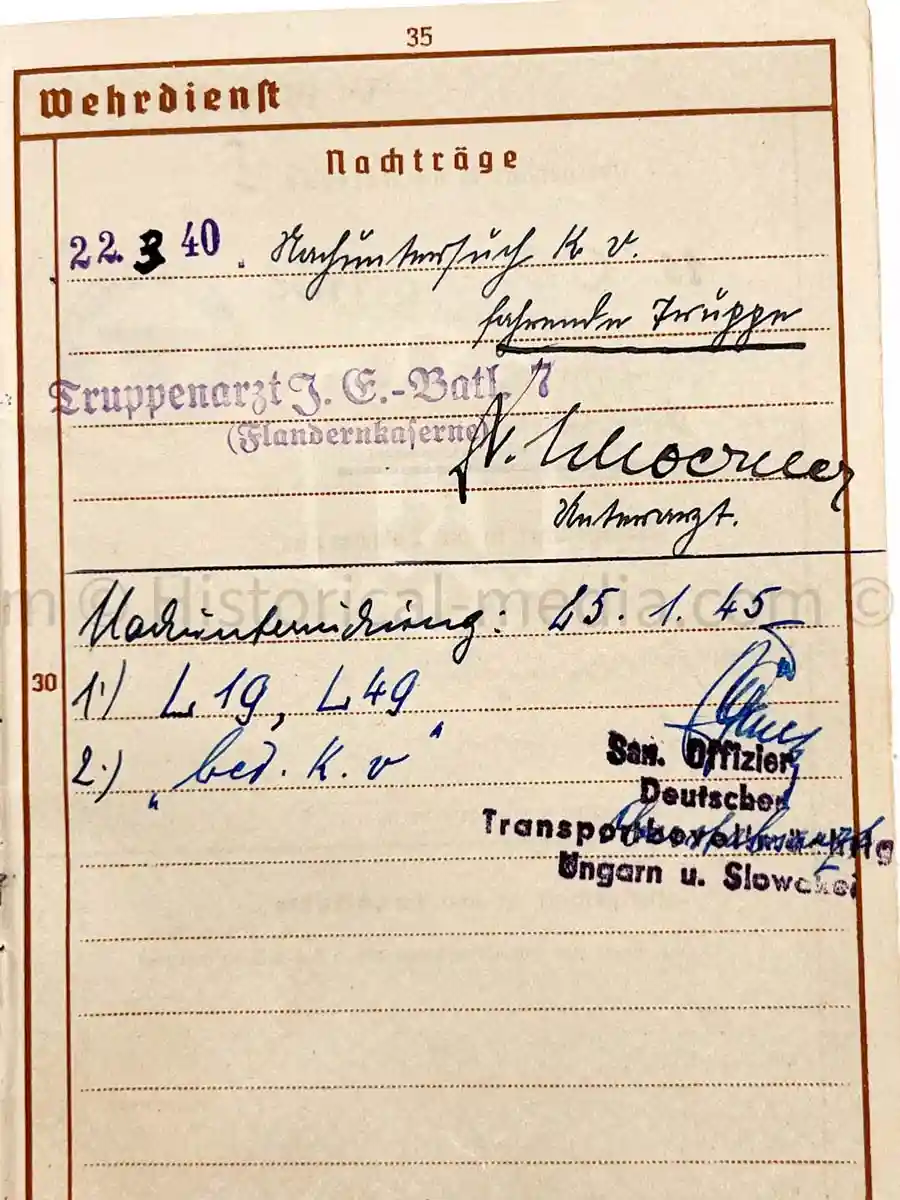 35
Wehrdienst
Nachträge
22. 3 40. Nachuntersuch K v.
fahrende Truppe
Truppenarzt J. E.-Batl. 7
(Flandernkaserne)
Unterarzt.
© Historical-media.com ©
Nachuntersuchung: 25. 1. 45
30
1.) L 19, L 49
2.) "bed. K. v"
San. Offizier
Deutscher
Transportbevollmächtig
Ungarn u. Slowakei